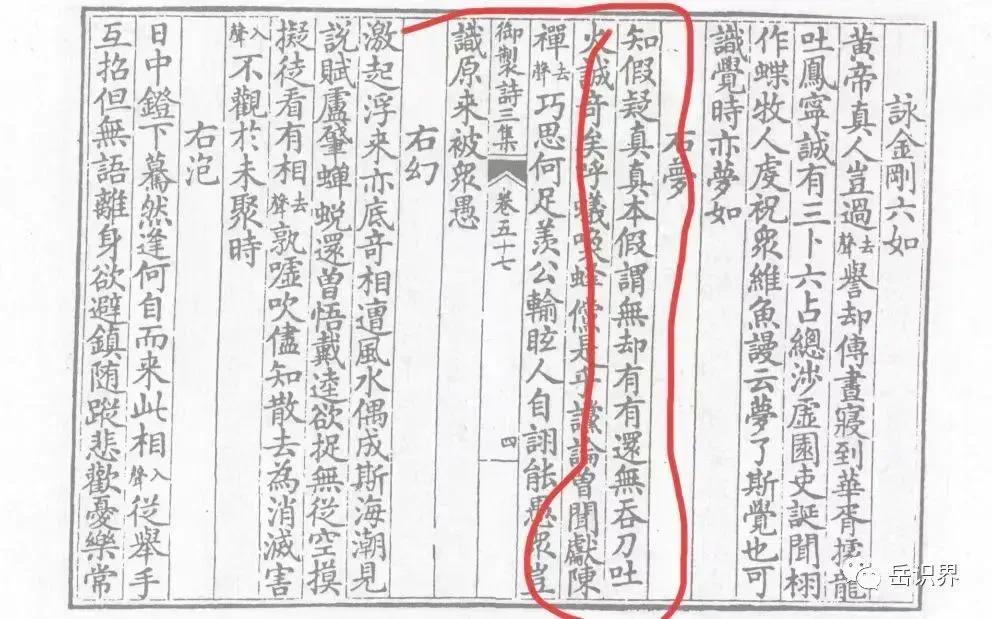 詠金剛六如
黄帝真人豈過去聲譽却傳晝寢到華胥龍
吐鳳寧誠有三卜六占總涉虛園吏誕聞栩
作蝶牧人虔祝衆維魚謾云夢了斯覺也可
識覺時亦夢如
右夢
知假疑真真本假謂無却有有還無吞刀吐
火誠奇矣呼蟻吸蜂儻是乎讜論曾聞獻陳
禪去聲巧思何足羨公輸眩人自詡能愚衆豈
御製詩三集 卷五十七 四
識原来被衆愚
右幻
激起浮来亦底奇相遭風水偶成斯海潮見
説賦盧肇蟬蜕還曽悟戴逵欲捉無從空摸
擬徒看有相去聲孰噓吹儘知散去為消滅害
入聲不觀於未聚時
右泡
日中鐙下驀然逢何自而来此相入聲從舉手
互招但無語離身欲避鎮随蹤悲歡憂樂常
岳识界